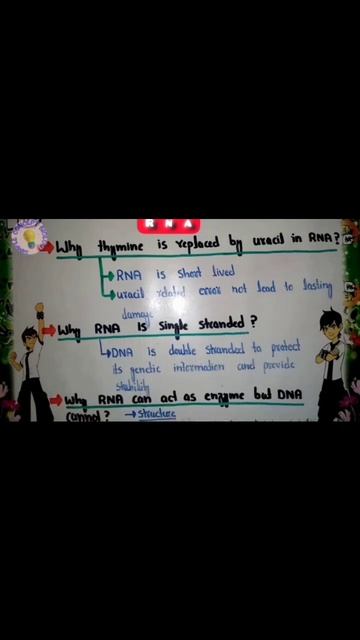 RNA
Why thymine is replaced by uracil in RNA?
RNA is short lived
uracil related error not lead to lasting
damage
Why RNA is single stranded?
DNA is double stranded to protect
its genetic information and provide
stability
why RNA can act as enzyme but DNA
cannot? → structure